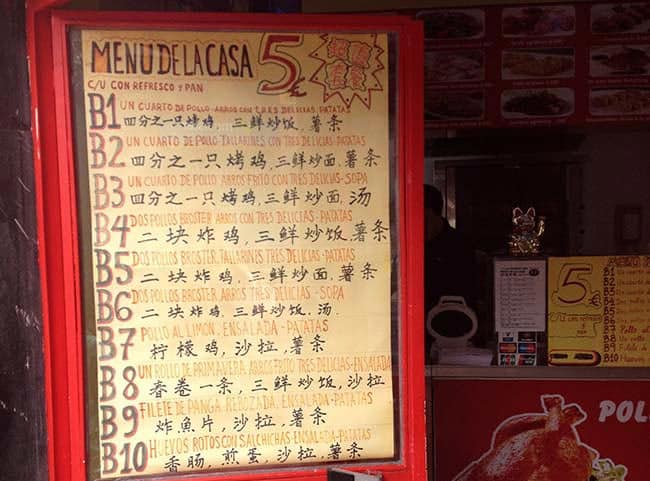 MENU DE LA CASA 5€
C/U CON REFRESCO Y PAN
B1 UN CUARTO DE POLLO-ARROS CON TRES DELICIAS-PATATAS
四分之一只烤鸡,三鲜炒饭,薯条
B2 UN CUARTO DE POLLO-TALLARINES CON TRES DELICIAS-PATATAS
四分之一只烤鸡,三鲜炒面,薯条
B3 UN CUARTO DE POLLO ARROS FRITO CON TRES DELICIAS-SOPA
四分之一只烤鸡,三鲜炒面,汤
B4 DOS POLLOS BROSTER. ARROS CON TRES DELICIAS-PATATAS
二块炸鸡,三鲜炒饭,薯条
B5 DOS POLLOS BROSTER. TALLARINES TRES DELICIAS-PATATAS
二块炸鸡,三鲜炒面,薯条
B6 DOS POLLOS BROSTER. ARROS TRES DELICIAS-SOPA
二块炸鸡,三鲜炒饭,汤.
B7 POLLO AL LIMON. ENSALADA-PATATAS
柠檬鸡,沙拉,薯条
B8 UN ROLLO DE PRIMAVERA. ARROS FRITO CON TRES DELICIAS-ENSALADA
春卷一条,三鲜炒饭,沙拉
B9 FILETE DE PANGA REBOZADA. ENSALADA-PATATAS
炸魚片,沙拉,薯条
B10 HUEVOS ROTOS CON SALCHICHAS-ENSALADA-PATATAS
香肠,煎蛋,沙拉,薯条
5€
B1
B2
B3
B4
B5
B6
B7 Pollo al
B8
B9
B10 Huevos
POL